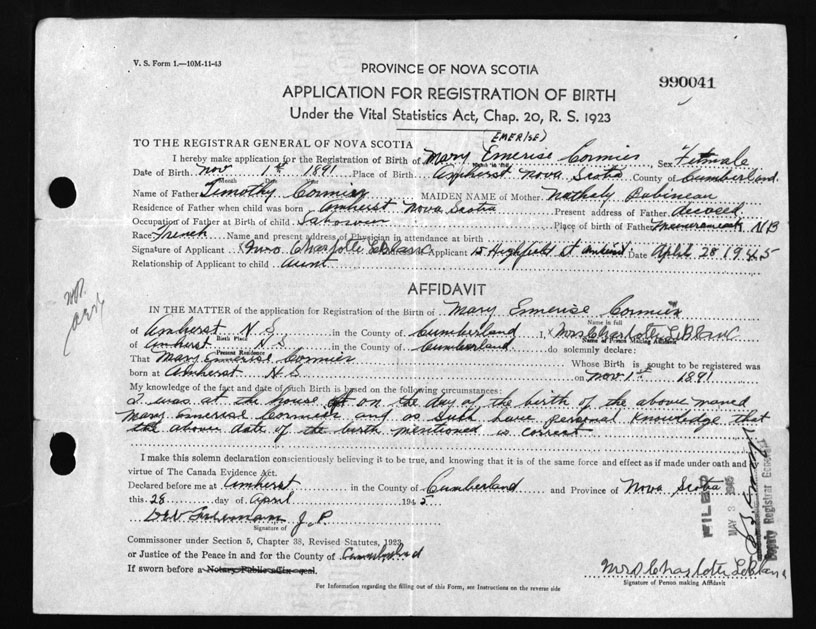 V. S. Form 1.—10M-11-43
PROVINCE OF NOVA SCOTIA
990041
APPLICATION FOR REGISTRATION OF BIRTH
Under the Vital Statistics Act, Chap. 20, R. S. 1923
(EMERISE)
TO THE REGISTRAR GENERAL OF NOVA SCOTIA
I hereby make application for the Registration of Birth of Mary Emerise Cormier, Sex Female
Date of Birth Nov 1st 1891 Place of Birth Amherst Nova Scotia County of Cumberland
Month Day
Name of Father Timothy Cormier MAIDEN NAME of Mother Nathaly
Residence of Father when child was born Amherst Nova Scotia Present address of Father
Occupation of Father at Birth of child Place of birth of Father NB
Race French Name and present address of Physician in attendance at birth
Signature of Applicant Mrs Charlotte LeBlanc Applicant 15 Highfield St Amherst Date April 28 1945
Relationship of Applicant to child Aunt
AFFIDAVIT
IN THE MATTER of the application for Registration of the Birth of Mary Emerise Cormier
Name in full
of Amherst N S in the County of Cumberland I, Mrs Charlotte LeBlanc
Birth Place
of Amherst N S in the County of Cumberland do solemnly declare:
Present Residence
That Mary Emerise Cormier Whose Birth is sought to be registered was
born at Amherst N S on Nov. 1st 1891
My knowledge of the fact and date of such Birth is based on the following circumstances:
I was at the house on the day of the birth of the above named
Mary Emerise Cormier and as such have personal knowledge that
the above date of the birth mentioned is correct
I make this solemn declaration conscientiously believing it to be true, and knowing that it is of the same force and effect as if made under oath and
virtue of The Canada Evidence Act.
Declared before me at Amherst in the County of Cumberland and Province of Nova Scotia
this 28 day of April 1945
J. P.
Signature of
Commissioner under Section 5, Chapter 38, Revised Statutes, 1923
or Justice of the Peace in and for the County of Cumberland
If sworn before a Notary Public affix seal.
Mrs Charlotte LeBlanc
Signature of Person making Affidavit
For Information regarding the filling out of this Form, see Instructions on the reverse side
FILED
MAY 3 1945
Deputy Registrar General